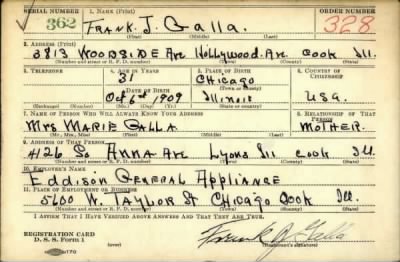 SERIAL NUMBER 1. NAME (Print) ORDER NUMBER
362 FRANK J. GALLA. 328
(First) (Middle) (Last)
2. ADDRESS (Print)
3813 WOODSIDE Av. Hollywood. Av. Cook Ill.
(Number and street or R. F. D. number) (Town) (County) (State)
3. TELEPHONE 4. AGE IN YEARS 5. PLACE OF BIRTH 6. COUNTRY OF CITIZENSHIP
31 Chicago
DATE OF BIRTH (Town or county)
Oct 6th 1909 Illinois USA.
(Exchange) (Number) (Mo.) (Day) (Yr.) (State or country)
7. NAME OF PERSON WHO WILL ALWAYS KNOW YOUR ADDRESS 8. RELATIONSHIP OF THAT PERSON
MRS MARIE GALLA MOTHER.
(Mr., Mrs., Miss) (First) (Middle) (Last)
9. ADDRESS OF THAT PERSON
4126 So ANNA Av Lyons Ill Cook Ill.
(Number and street or R. F. D. number) (Town) (County) (State)
10. EMPLOYER'S NAME
Eddison General Appliance
11. PLACE OF EMPLOYMENT OR BUSINESS
5600 W. Taylor St Chicago Cook Ill.
(Number and street or R. F. D. number) (Town) (County) (State)
I AFFIRM THAT I HAVE VERIFIED ABOVE ANSWERS AND THAT THEY ARE TRUE.
REGISTRATION CARD
D. S. S. Form 1
Frank J. Galla
(Registrant's signature)